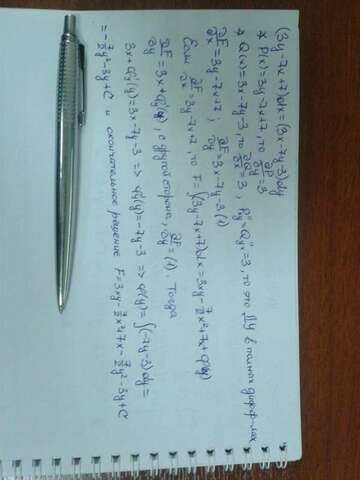 (3y-7x+7)dx=(3x-7y-3)dy
* P(x)=3y-7x+7, то ∂P/∂y=3
* Q(x)=3x-7y-3, то ∂Q/∂x=3, P'y=Q'x=3, то это ДУ в полных дифф-лах
∂F/∂x=3y-7x+7; ∂F/∂y=3x-7y-3 (1)
Если ∂F/∂x=3y-7x+7, то F=∫(3y-7x+7)dx=3xy-7/2x²+7x+φ(y)
∂F/∂y=3x+φ'(y), с другой стороны, ∂F/∂y=(1). Тогда
3x+φ'(y)=3x-7y-3 => φ'(y)=-7y-3 => φ(y)=∫(-7y-3)dy=
=-7/2y²-3y+C и окончательное решение F=3xy-7/2x²+7x-7/2y²-3y+C